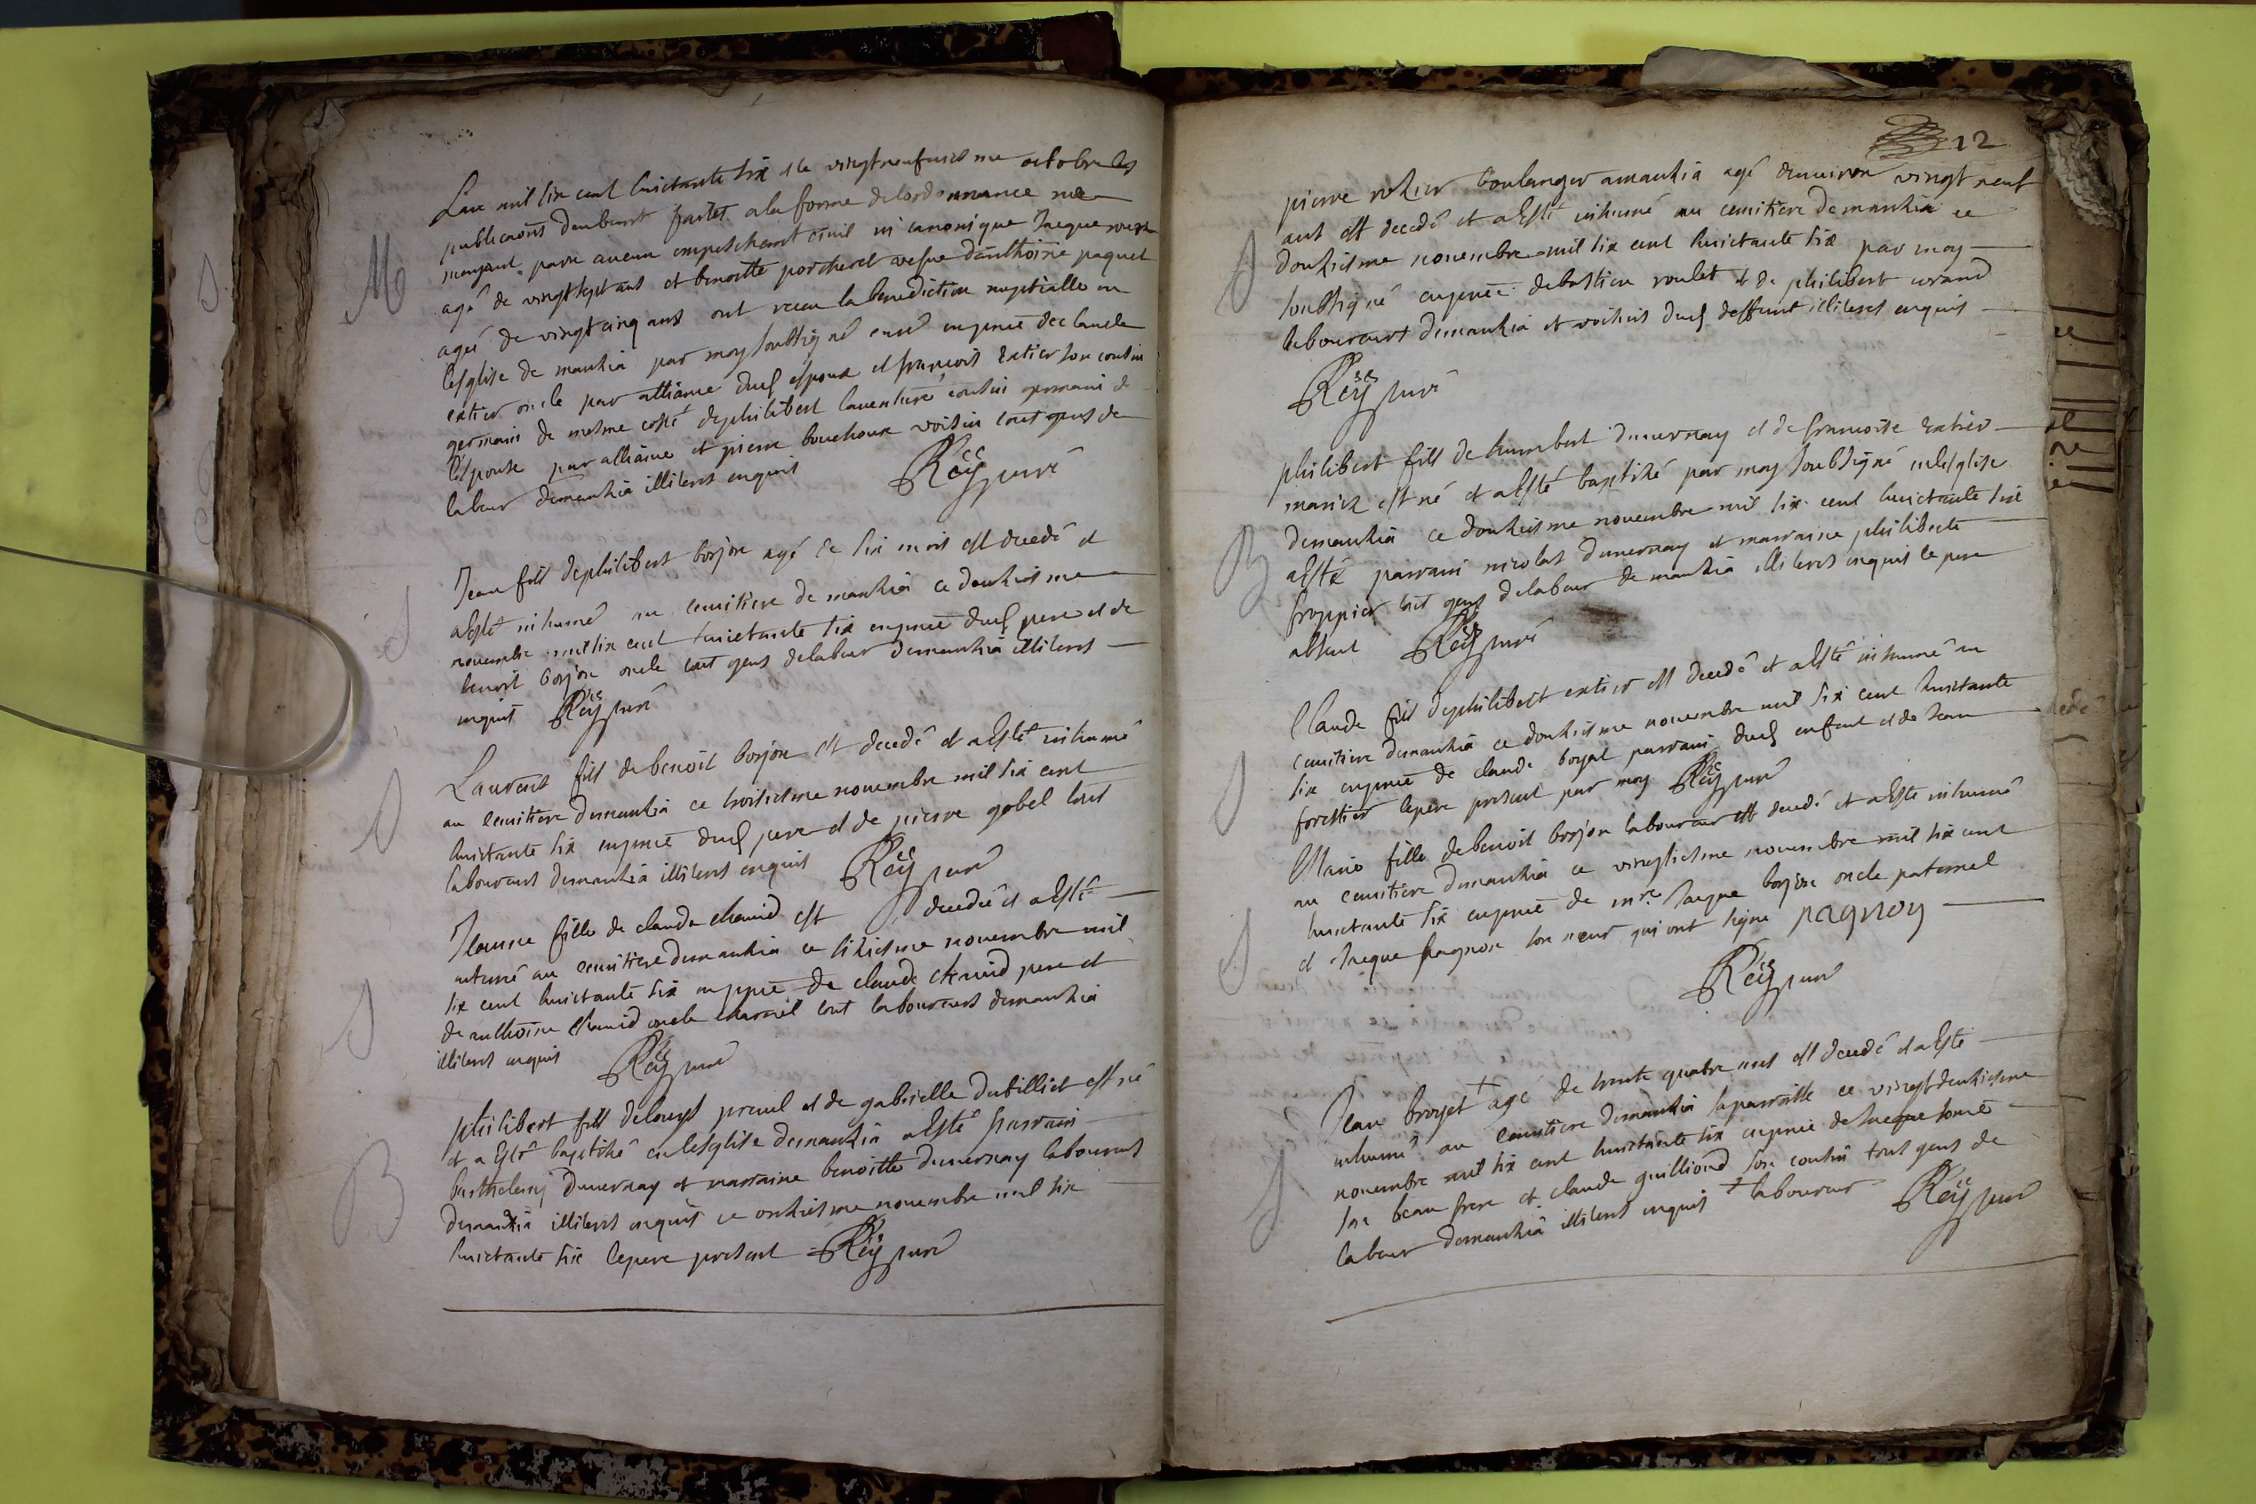 M
Lan mil six cent huictante six et le vingtneufviesme octobre les
publicaons deubment faites a la forme de lordonnance ne
moyant paru aucun empeschement civil ni canonique Jacque
agé de vingt sept ans et benoitte porcheret vefve danthoine paquet
agée de vingt cinq ans ont receu la benediction nuptialle en
lesglise de manzia par moy soubsigné curé en pnce de claude
extier oncle par alliance dud espoux et francois Extier son cousin
germain de mesme costé de philibert laventure cousin germain de
lespouse par alliance et pierre bouchoux voisin tout gens de
labeur de manzia illiterés enquis Rey curé
S
Jean fils de philibert borjon agé de six mois est decedé et
a esté inhumé au cemitiere de manzia ce douziesme
novembre mil six cent huictante six en pnce dud pere et de
benoit borjon oncle tout gens de labeur de manzia illiterés
enquis Rey curé
S
Laurent fils de benoit borjon est decedé et a esté inhumé
au cemitiere de manzia ce troisiesme novembre mil six cent
huictante six en pnce dud pere et de pierre gobel tout
laboureurs de manzia illiterés enquis Rey curé
S
Jeanne fille de claude chanid est decedée et a esté
enterré au cemitiere de manzia ce sixiesme novembre mil
six cent huictante six en pnce de claude chanid pere et
de anthoine chanid oncle tout laboureurs de manzia
illiterés enquis Rey curé
B
philibert fils de louys preuel et de gabrielle dubilliet est né
et a esté baptisé en lesglise de manzia a esté parrain
barthelemy Duvernay et marraine benoitte duvernay laboureurs
de manzia illiterés enquis ce onziesme novembre mil six
huictante six le pere present Rey curé
12
S
pierre rozier boulanger a manzia agé denviron vingt neuf
ans est decedé et a esté inhumé au cemitiere de manzia ce
douziesme novembre mil six cent huictante six par moy
soubsigné en pnce de bastien roulet et de philibert
laboureurs de manzia et voisins dud deffunt illiterés enquis
Rey curé
B
philibert fils de humbert duvernay et de francoise Extier
mariez est né et a esté baptisé par moy soubsigné en lesglise
de manzia ce douziesme novembre mil six cent huictante six
a esté parrain nicolas duvernay et marraine philiberte
froppier tout gens de labeur de manzia illiterés enquis le pere
absent Rey curé
S
Claude fils de philibert extier est decedé et a esté inhumé au
cemitiere de manzia ce douziesme novembre mil six cent huictante
six en pnce de claude boyat parrain dud enfant et de Jean
forestier le pere present par moy Rey curé
S
Marie fille de benoit borjon laboureur est decedé et a esté inhumé
au cemitiere de manzia ce vingtiesme novembre mil six cent
huictante six en pnce de mre Jacque borjon oncle paternel
et Jacque pagnon son neveu qui ont signe pagnon
Rey curé
S
Jean broyet + agé de trente quatre ans est decedé et a esté
inhumé au cemitiere de manzia sa parroisse ce vingtdeuxiesme
novembre mil six cent huictante six en pnce de Jacque
son beau frere et claude guilliond son cousin tous gens de
labeur de manzia illiterés enquis + laboureur Rey curé